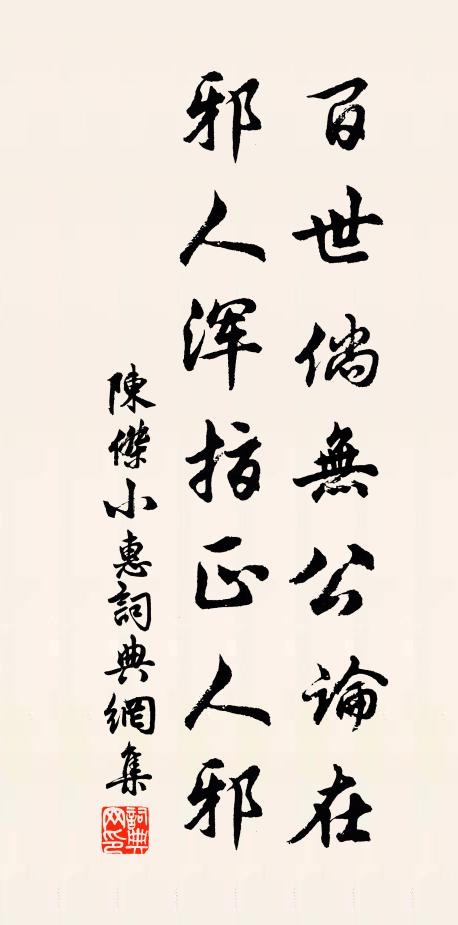 百世倘無公論在
邪人渾指正人邪
陳傑小惠詞典網集
詞典網印